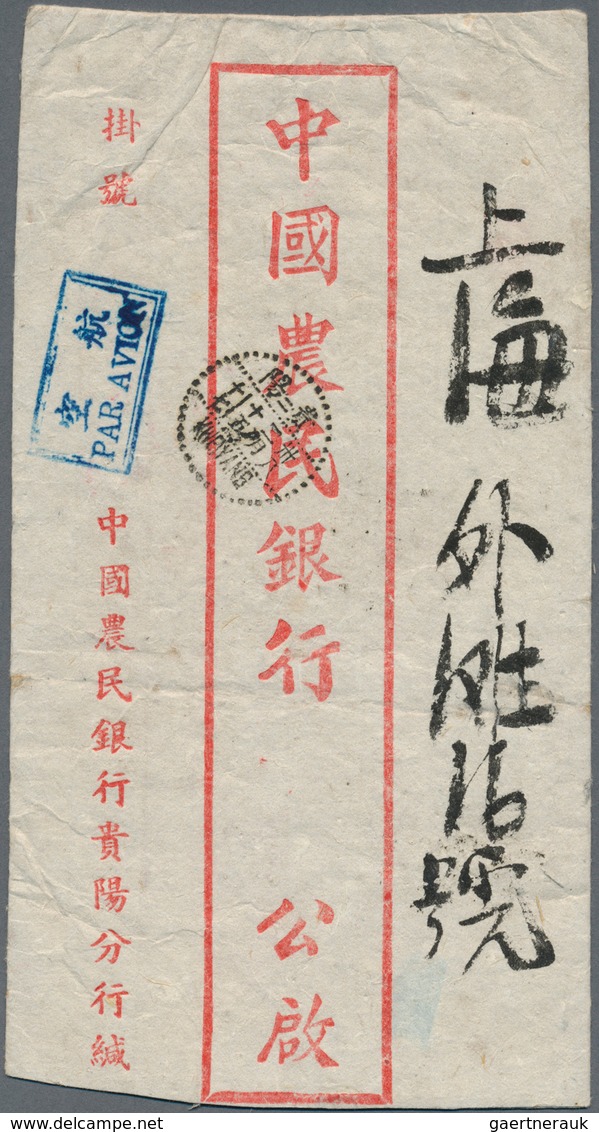 上海 外灘16號
中國農民銀行 公啟
掛號
航空
PAR AVION
中國農民銀行貴陽分行緘
KWEIYANG
delcampe.net
gaertnerauk